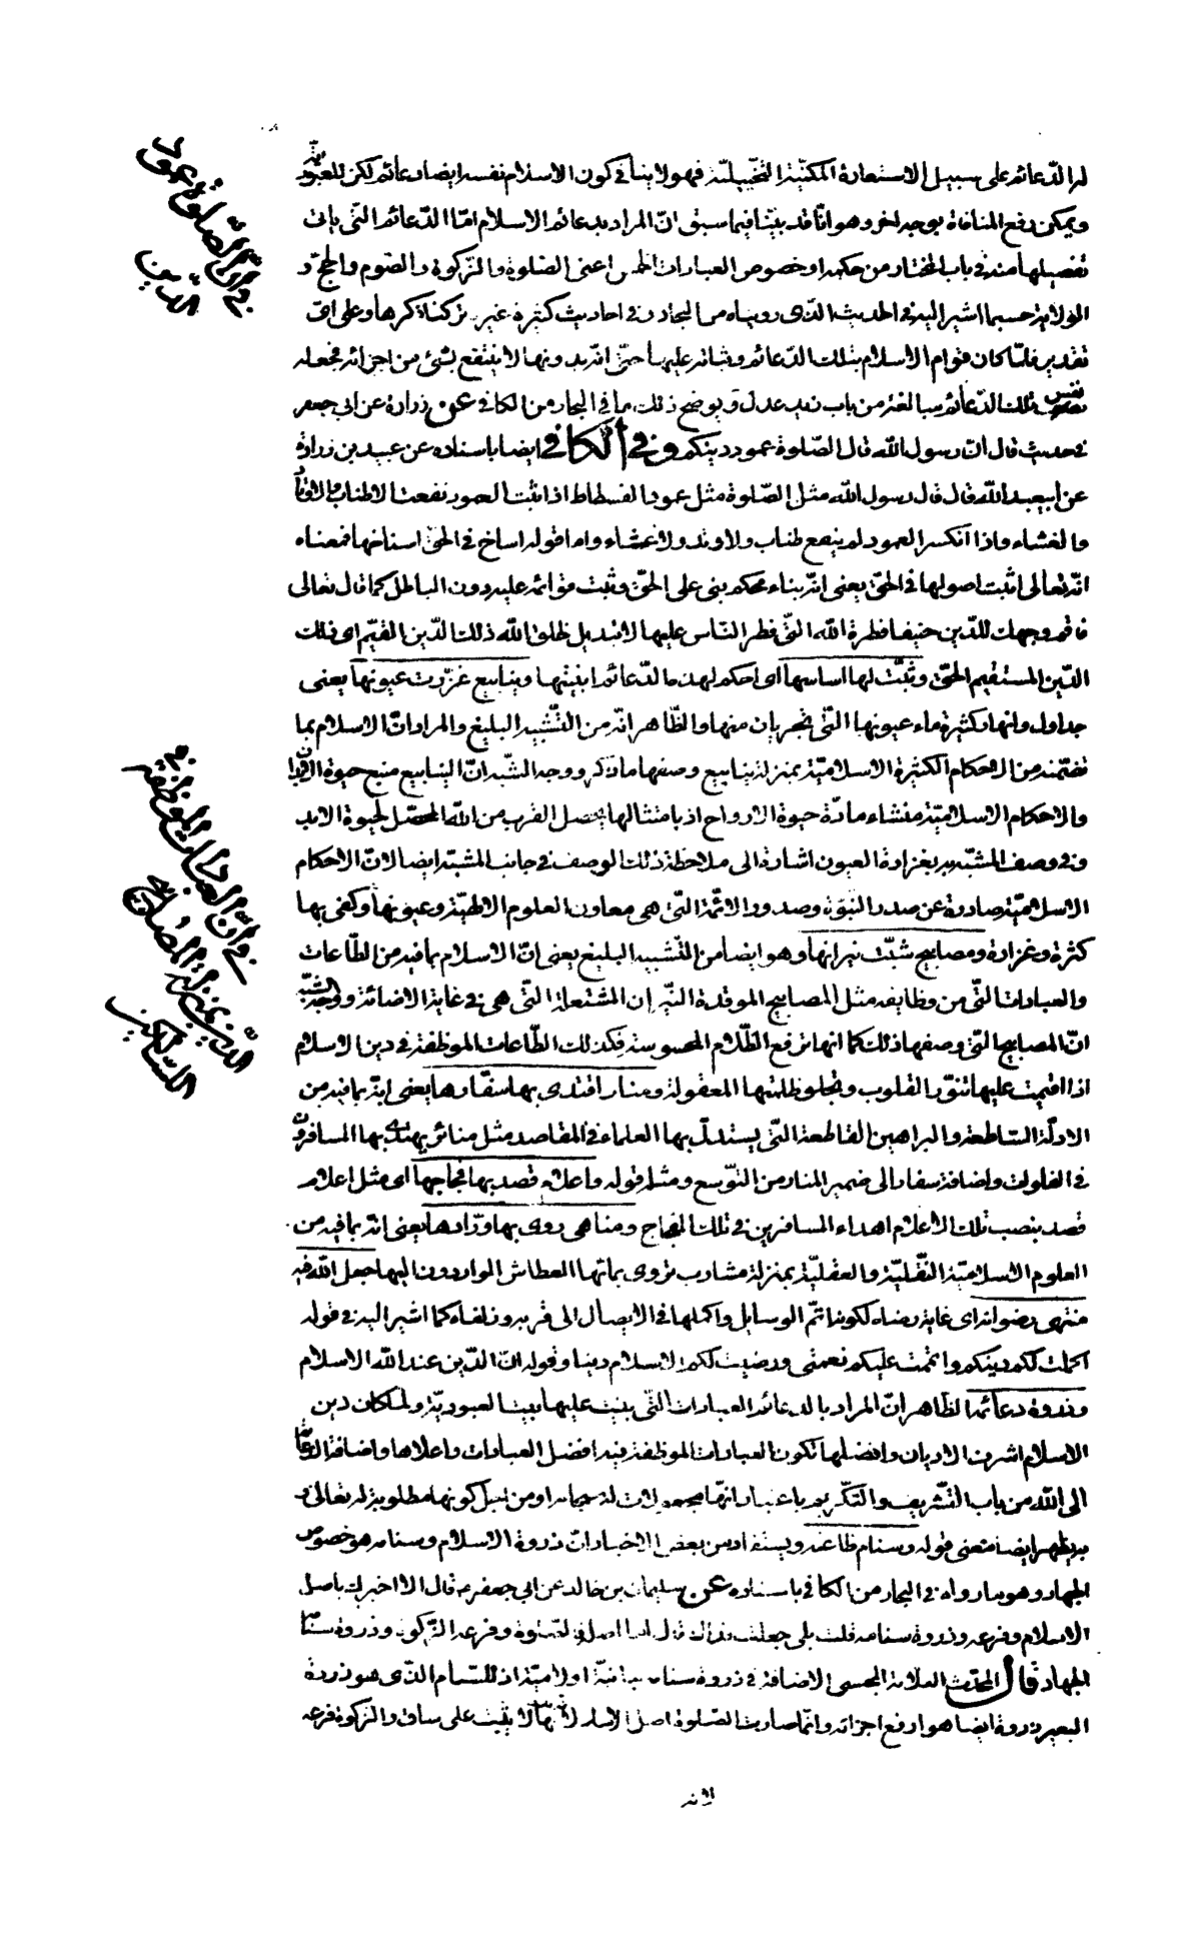 له الدّعائم على سبيل الاستعارة المكنيّة التخييليّة فهو لا ينافي كون الاسلام نفسه ايضا دعائم لكن للعبوديّة
ويمكن رفع المنافاة بوجه اخر وهو انّا قد بيّنا فيما سبق انّ المراد بدعائم الاسلام امّا الدّعائم الّتي ياتي
تفصيلها منه في باب المختار من حكمه او خصوص العبادات الخمس اعني الصّلوة والزّكوة والصّوم والحجّ و
الولاية حسبما اشير اليه في الحديث الّذي رويناه من البحار في احاديث كثيرة غيره تركنا ذكرها وعلى اىّ
تقدير فلمّا كان قوام الاسلام بتلك الدّعائم وثباته عليها حتّى انّه بدونها لا ينتفع بشيء من اجزائه فجعله
نفس تلك الدّعائم مبالغة من باب زيد عدل ويوضح ذلك ما في البحار من الكافي عن زرارة عن ابي جعفر
في حديث قال انّ رسول الله قال الصّلوة عمود دينكم وفي الكافي ايضا باسناده عن عبيد بن زرارة
عن ابيعبد الله قال قال رسول الله مثل الصّلوة مثل عمود الفسطاط اذا ثبت العمود نفعت الاطناب والاوتاد
والغشاء واذا انكسر العمود لم ينفع طناب ولا وتد ولا غشاء واما قوله اساخ في الحقّ اسناخها فمعناه
انّه تعالى اثبت اصولها في الحقّ يعني انّه بناء محكم بني على الحقّ وثبت قوائمه عليه دون الباطل كما قال تعالى
فاقم وجهك للدّين حنيفا فطرة الله الّتي فطر النّاس عليها لا تبديل لخلق الله ذلك الدّين القيّم اى ذلك
الدّين المستقيم الحقّ وثبّت لها اساسها اى احكم لهذه الدّعائم ابنيتها وينابيع غزرت عيونها يعني
جداول وانهار كثيرة ماء عيونها الّتي تجريان منها والظّاهر انّه من التّشبيه البليغ والمراد انّ الاسلام بما
تضمّنه من الاحكام الكثيرة الاسلاميّة بمنزلة ينابيع وصفها ما ذكر ووجه الشّبه انّ الينابيع منبع حيوة الابدان
والاحكام الاسلاميّة منشاء مادّة حيوة الارواح اذ بامتثالها يحصل القرب من الله المحصّل لحيوة الابد
وفي وصف المشبّه به بغزارة العيون اشارة الى ملاحظة ذلك الوصف في جانب المشبّه ايضا لانّ الاحكام
الاسلاميّة صادرة عن صدر النبوّة وصدور الائمّة الّتي هي معادن العلوم الالهيّة وعيونها وكفى بها
كثرة وغزارة ومصابيح شبّت نيرانها وهو ايضا من التّشبيه البليغ يعني انّ الاسلام بما فيه من الطّاعات
والعبادات الّتي من وظايفه مثل المصابيح الموقدة النّيران المشتعلة الّتي هي في غاية الاضائة ووجه الشّبه
انّ المصابيح الّتي وصفها ذلك كما انها ترفع الظّلام المحسوسة فكذلك الطّاعات الموظّفة في دين الاسلام
اذا اقيمت عليها تنوّر القلوب وتجلو ظلمتها المعقولة ومنار اقتدى بها سفّارها يعني انّه بما فيه من
الادلّة السّاطعة والبراهين القاطعة الّتي يستدلّ بها العلماء في المقاصد مثل منائر يهتدى بها المسافرون
في الفلوات واضافة سفار الى ضمير المنار من التّوسع ومثله قوله واعلام قصد بها فجاجها اى مثل اعلام
قصد بنصب تلك الاعلام اهداء المسافرين في تلك الفجاج ومناهل روى بها ورّادها يعني انّه بما فيه من
العلوم الاسلاميّة النّقليّة والعقليّة بمنزلة مشارب تروى بمائها العطاش الواردون اليها جعل الله فيه
منتهى رضوانه اى غاية رضاه لكونه اتمّ الوسايل واكملها في الايصال الى قربه وزلفاه كما اشير اليه في قوله
اكملت لكم دينكم واتممت عليكم نعمتي ورضيت لكم الاسلام دينا وقوله انّ الدّين عند الله الاسلام
وذروة دعائمه الظاهر انّ المراد بالدعائم العبادات الّتي بنيت عليها بيت العبوديّة ولمّا كان دين
الاسلام اشرف الاديان وافضلها تكون العبادات الموظّفة فيه افضل العبادات واعلاها واضافة الدعائم
الى الله من باب التّشريف والتّكريم باعتبار انّها مجعولات له سبحانه او من قبيل كونها مطلوبة له تعالى و
به يظهر ايضا معنى قوله وسنام طاعته ويستفاد من بعض الاخبار انّ ذروة الاسلام وسنامه هو خصوص
الجهاد وهو ما رواه في البحار من الكافي باسناده عن سليمان بن خالد عن ابي جعفر قال الا اخبرك باصل
الاسلام وفرعه وذروة سنامه قلت بلى جعلت فداك قال امّا اصله الصّلوة وفرعه الزّكوة وذروة سنامه
الجهاد قال المحدّث العلامة المجلسي الاضافة في ذروة سنامه بيانيّة او لاميّة اذ للسّنام الّذي هو ذروة
البعير ذروة ايضا هو ارفع اجزائه وانّما صارت الصّلوة اصل الاسلام لانّه بدونها لا يثبت على ساق والزكوة فرعه
لانه
في انّ الصّلوة عمود
الدّين
في انّ العبادات الموظّفة في
الدّين بمنزلة المصابيح
للسّالكين